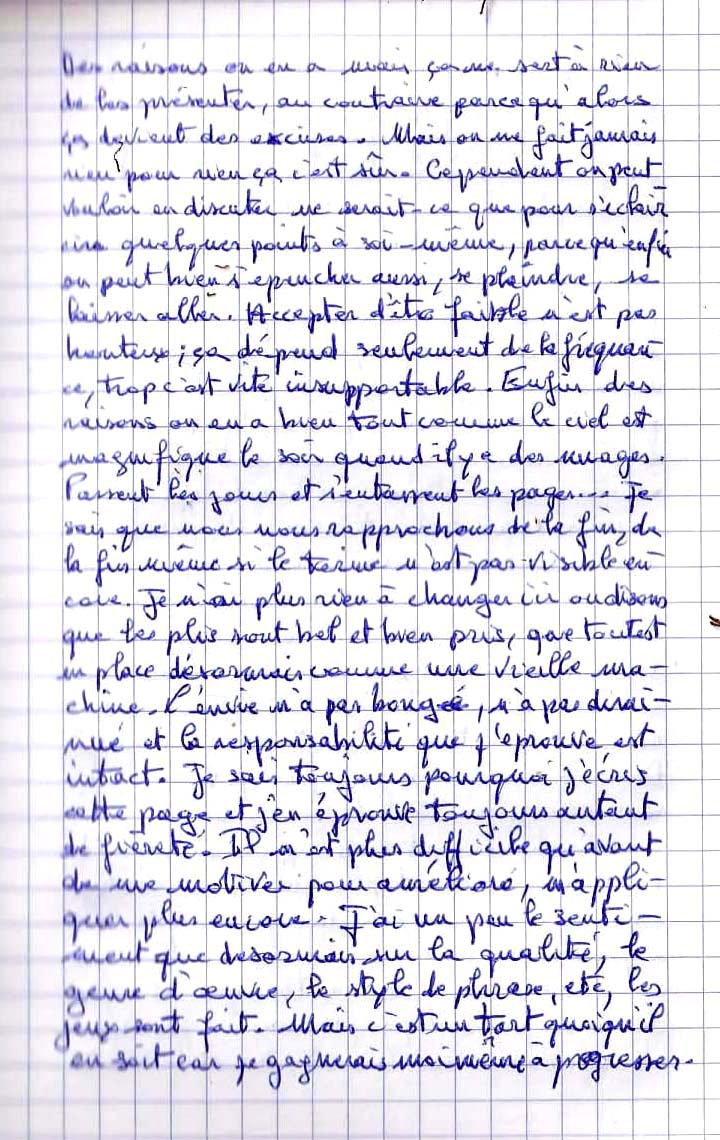 Des raisons on en a mais ça ne sert à rien
de les présenter, au contraire parce qu'alors
ça devient des excuses. Mais on ne fait jamais
rien pour rien ça c'est sûr. Cependant on peut
vouloir en discuter ne serait-ce que pour s'éclair
cir quelques points à soi-même, parce qu'enfin
on peut bien s'eplucher aussi, se plaindre, se
laisser aller. Accepter d'être faible n'est pas
honteux ; ça dépend seulement de la fréquen
ce, trop c'est vite insupportable. Enfin des
raisons on en a bien tout comme le ciel est
magnifique le soir quand il y a des nuages.
Passent les jours et s'entassent les pages... Je
sais que nous nous rapprochons de la fin, de
la fin même si le terme n'est pas visible en
core. Je n'ai plus rien à changer ici ou disons
que les plis sont bel et bien pris, que tout est
en place désormais comme une vieille ma-
chine. L'envie n'a pas bougé, n'a pas dimi-
nué et la responsabilité que j'éprouve est
intact. Je sais toujours pourquoi j'écris
cette page et j'en éprouve toujours autant
de fièreté. Il m'est plus difficile qu'avant
de me motiver pour améliorer, m'appli-
quer plus encore. J'ai un peu le senti-
ment que desormais sur la qualité, le
genre d'œuvre, le style de phrase, etc, les
jeux sont fait. Mais c'est un tort quoiqu'il
en soit car je gagnerais moi même à progresser.